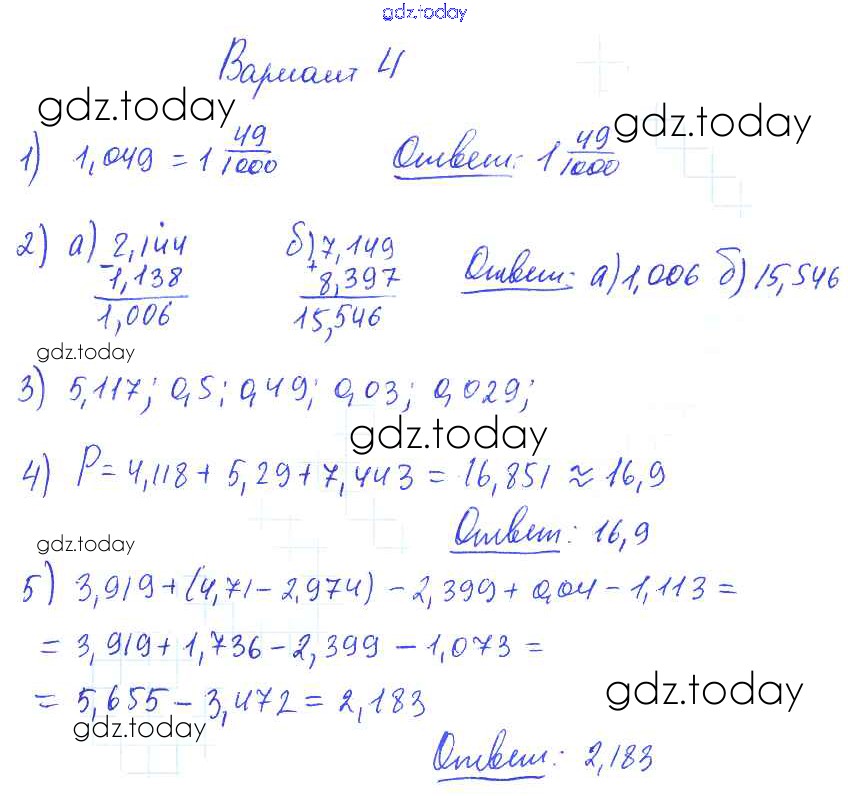 gdz.today
Вариант 4
gdz.today
gdz.today
1) 1,049 = 1 49/1000 Ответ: 1 49/1000
2) а) 2,144 - 1,138 = 1,006 б) 7,149 + 8,397 = 15,546 Ответ: а) 1,006 б) 15,546
gdz.today
3) 5,117; 0,5; 0,49; 0,03; 0,029;
gdz.today
4) P = 4,118 + 5,29 + 7,443 = 16,851 ≈ 16,9
Ответ: 16,9
gdz.today
5) 3,919 + (4,71 - 2,974) - 2,399 + 0,04 - 1,113 =
= 3,919 + 1,736 - 2,399 - 1,073 =
= 5,655 - 3,472 = 2,183
gdz.today
gdz.today
Ответ: 2,183